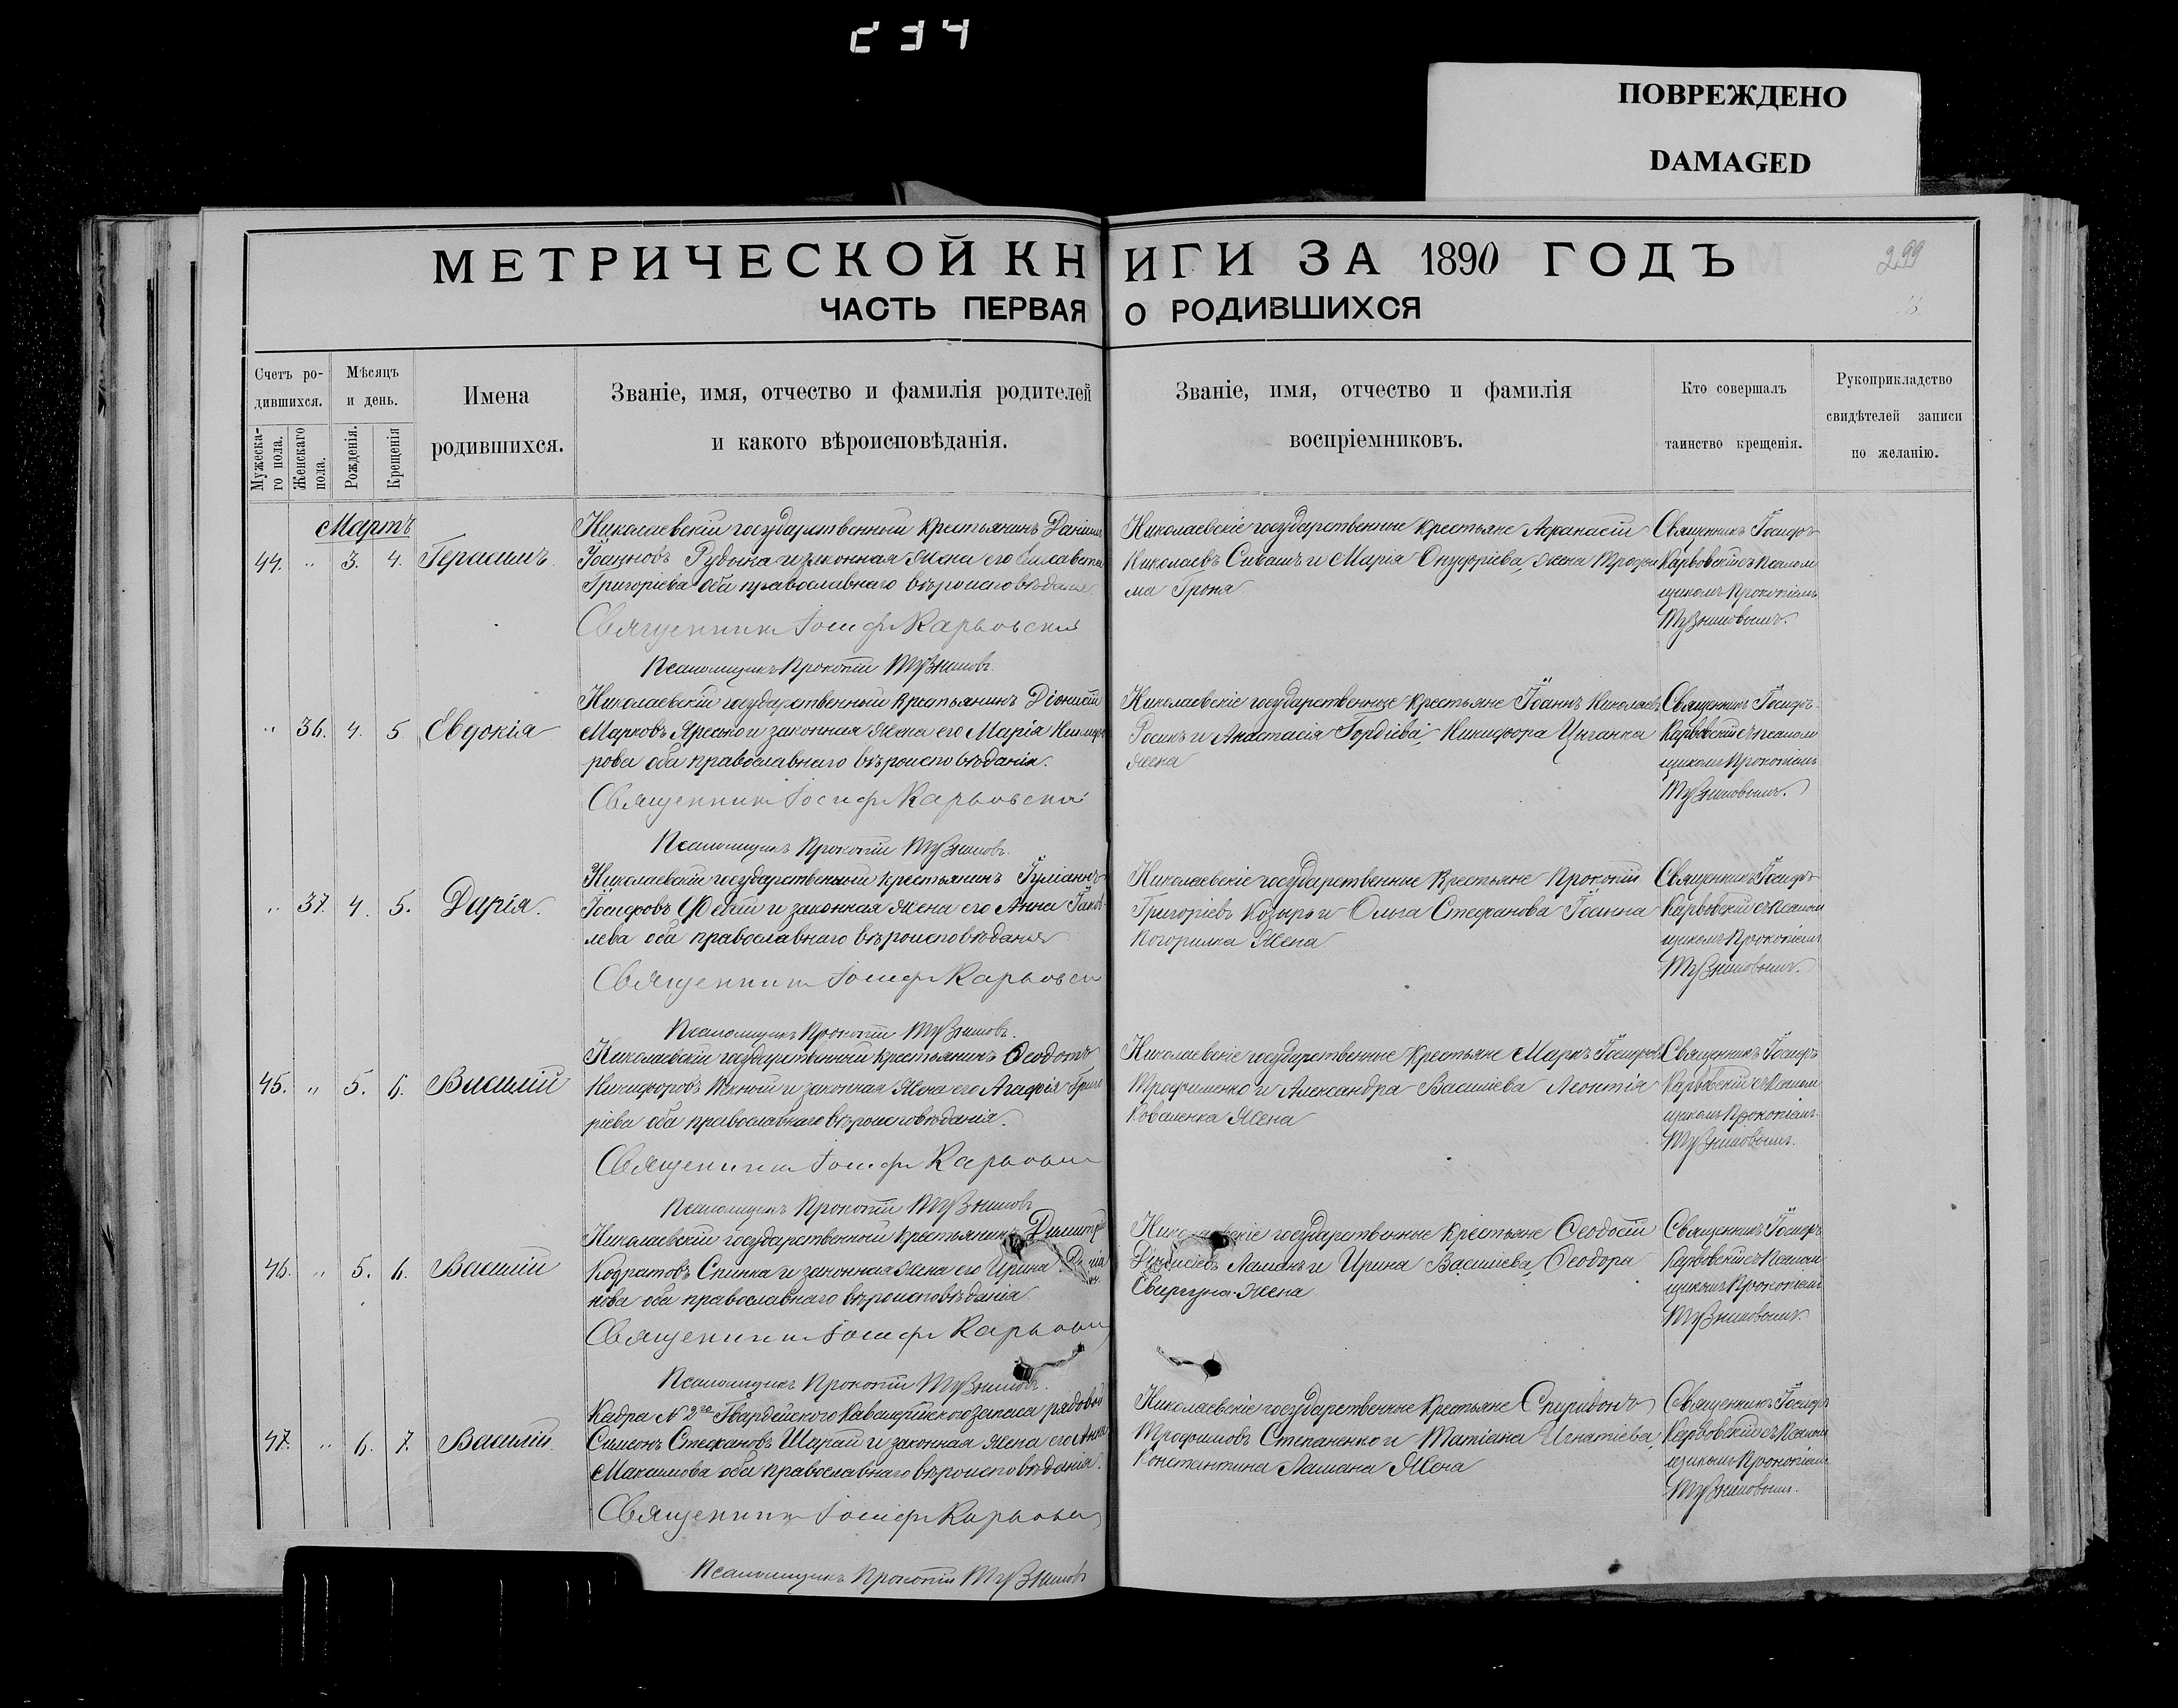 234
ПОВРЕЖДЕНО
DAMAGED
МЕТРИЧЕСКОЙ КНИГИ ЗА 1890 ГОДЪ
299
ЧАСТЬ ПЕРВАЯ О РОДИВШИХСЯ
Счетъ ро-
дившихся.
Мужеска-
го пола.
Женскаго
пола.
Мѣсяцъ
и день.
Рожденія.
Крещенія
Имена
родившихся.
Званіе, имя, отчество и фамилія родителей
и какого вѣроисповѣданія.
Званіе, имя, отчество и фамилія
воспріемниковъ.
Кто совершалъ
таинство крещенія.
Рукоприкладство
свидѣтелей записи
по желанію.
Мартъ
44. " 3. 4. Герасимъ
Николаевскій государственный крестьянинъ Даніилъ
Іоанновъ Рудока и законная жена его Елисавета
Григоріева оба православнаго вѣроисповѣданія.
Священникъ Іосифъ Карвовскій
Псаломщикъ Прокопій
Николаевскіе государственные крестьяне Афанасій
Николаевъ Сивашъ и Марія Онуфріева, жена Трофи
ма Гроня
Священникъ Іосифъ
Карвовскій съ псалом
щикомъ Прокопіемъ
" 36. 4. 5. Евдокія
Николаевскій государственный крестьянинъ Діонисій
Марковъ Яресько и законная жена его Марія Никифо
рова оба православнаго вѣроисповѣданія.
Священникъ Іосифъ Карвовскій
Псаломщикъ Прокопій
Николаевскіе государственные крестьяне Іоаннъ Николаевъ
Росикъ и Анастасія Гордіева, Никифора Цыганка
жена
Священникъ Іосифъ
Карвовскій съ псалом
щикомъ Прокопіемъ
" 37. 4. 5. Дарія.
Николаевскій государственный крестьянинъ Іуліанъ
Іосифовъ и законная жена его Анна
лева оба православнаго вѣроисповѣданія
Священникъ Іосифъ Карвовск
Псаломщикъ Прокопій
Николаевскіе государственные крестьяне Прокопій
Григоріевъ Козырь и Ольга Стефанова Іоанна
Погорилка жена
Священникъ Іосифъ
Карвовскій съ псалом
щикомъ Прокопіемъ
45. " 5. 6. Василій
Николаевскій государственный крестьянинъ Ѳеодотъ
Никифоровъ Южный и законная жена его Агафія Григо
ріева оба православнаго вѣроисповѣданія.
Священникъ Іосифъ Карвовск
Псаломщикъ Прокопій
Николаевскіе государственные крестьяне Маркъ Іосифовъ
Трофименко и Александра Василіева Леонтія
Коваленка жена
Священникъ Іосифъ
Карвовскій съ псалом
щикомъ Прокопіемъ
46. " 5. 6. Василій
Николаевскій государственный крестьянинъ Димитрій
Кодратовъ Спинка и законная жена его Ирина
нова оба православнаго вѣроисповѣданія.
Священникъ Іосифъ Карвовск
Псаломщикъ Прокопій
Николаевскіе государственные крестьяне Ѳеодосій
Діонисіевъ Ламанъ и Ирина Василіева, Ѳеодора
Свиргуна жена
Священникъ Іосифъ
Карвовскій съ псалом
щикомъ Прокопіемъ
47. " 6. 7. Василій.
Кадра № 2го Гвардейскаго Кавалерійскаго запаса рядовой
Симеонъ Стефановъ Шарай и законная жена его Анна
Максимова оба православнаго вѣроисповѣданія.
Священникъ Іосифъ Карвовск
Псаломщикъ Прокопій
Николаевскіе государственные крестьяне Спиридонъ
Трофимовъ Степаненко и Татіана Игнатіева,
Константина Ламана жена
Священникъ Іосифъ
Карвовскій съ псалом
щикомъ Прокопіемъ